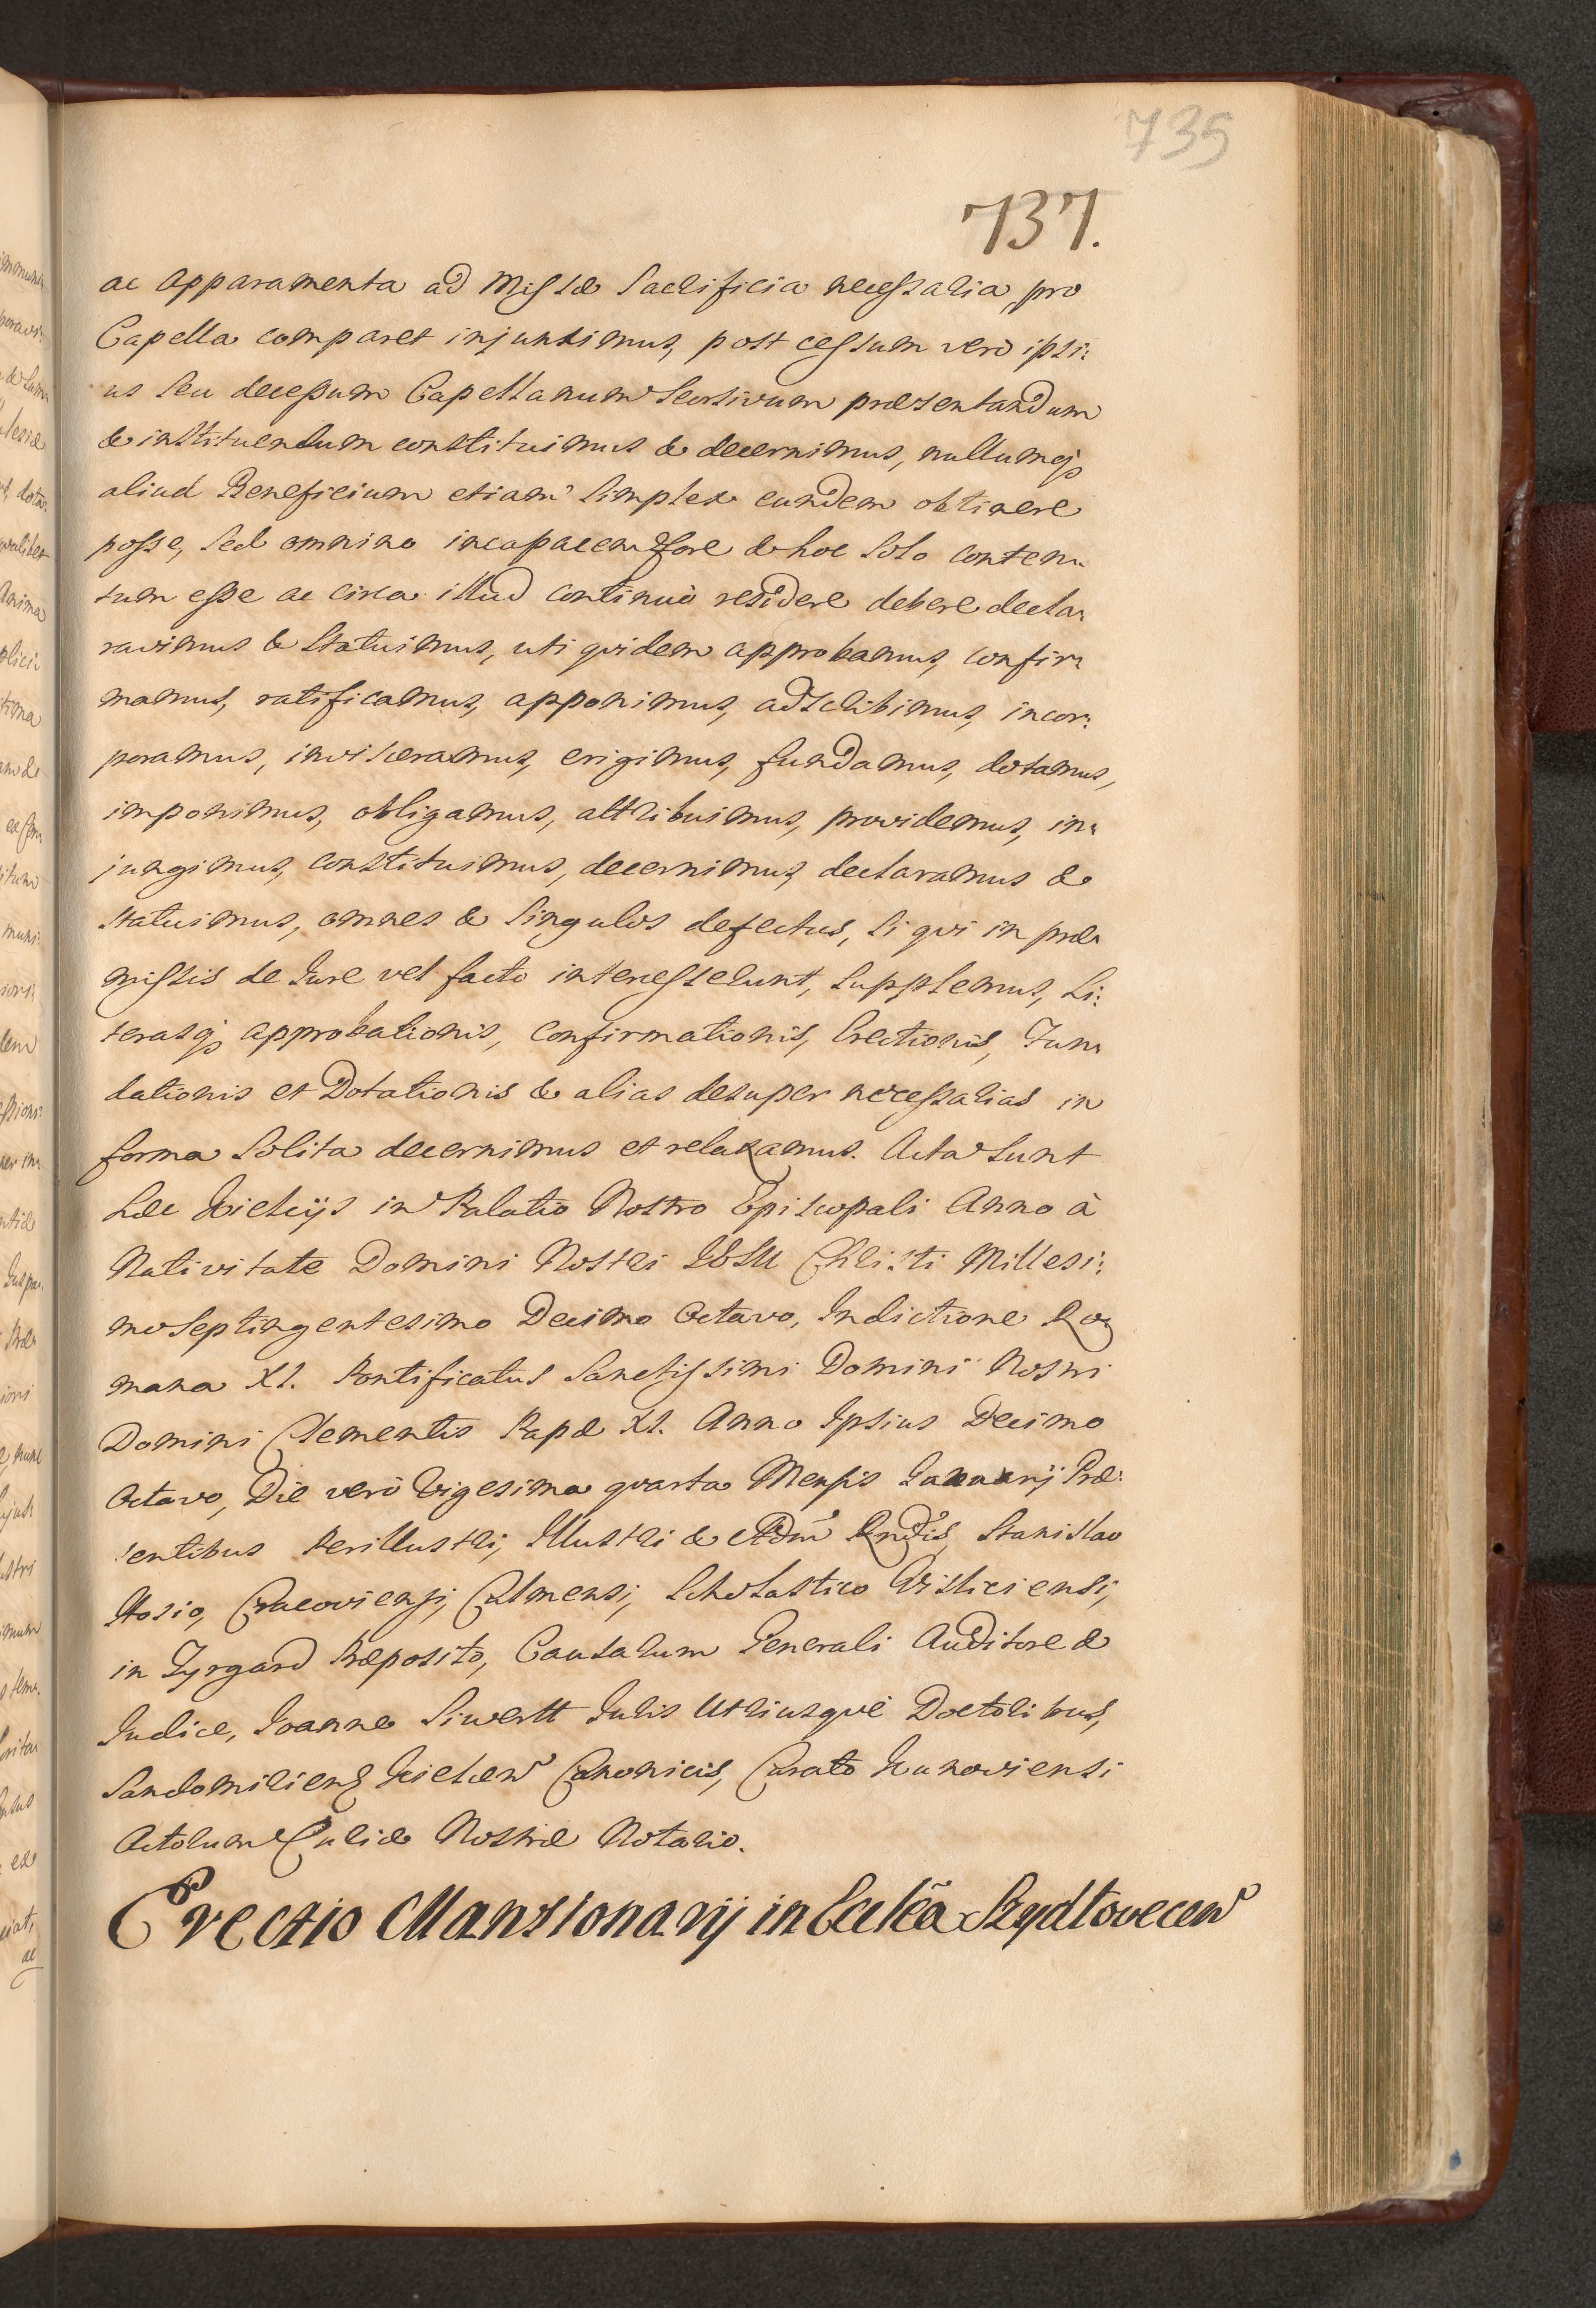 735
737.
ac apparamenta ad Missæ Sacrificia necessaria, pro
Capella comparet injunximus, post cessum verò ipsi:
us seu decessum Capellanum seorsivum præsentandum
& instituendum constituimus & decernimus, nullumq3
aliud Beneficium etiam simplex eundem obtinere
posse, sed omnino incapacem fore & hoc solo conten:
tum esse ac circa illud continuò residere debere decla:
ravimus & statuimus, uti quidem approbamus, confir:
mamus, ratificamus, apponimus, adscribimus, incor:
poramus, invisceramus, erigimus, fundamus, dotamus,
imponimus, obligamus, attribuimus, providemus, in:
jungimus, constituimus, decernimus, declaramus &
statuimus, omnes & singulos defectus, si qui in præ:
missis de Jure vel facto intercesserunt, supplemus, Li:
terasq3 approbationis, confirmationis, Erectionis, Fun:
dationis et Dotationis & alias desuper necessarias in
forma solita decernimus et relaxamus. Acta sunt
hæc Kielcijs in Palatio Nostro Episcopali Anno à
Nativitate Domini Nostri IESU Christi Millesi:
mo Septingentesimo Decimo Octavo, Indictione Ro:
mana XI. Pontificatus Sanctissimi Domini Nostri
Domini Clementis Papæ XI. Anno Ipsius Decimo
Octavo, Die verò Vigesima quarta Mensis Januarij Præ:
sentibus Perillustri, Illustri & Adm̃ Rndis, Stanislao
Hosio, Cracoviensi, Culmensi, Scholastico Visliciensi,
in Gyrgard Præposito, Causarum Generali Auditore &
Judice, Joanne Siwertt Juris Utriusque Doctoribus,
Sandomirien3 Kielcen Canonicis, Curato Kunoviensi
Actorum Curiæ Nostræ Notario.
Erectio Mansionarij in Ecclẽa Szydlovecen